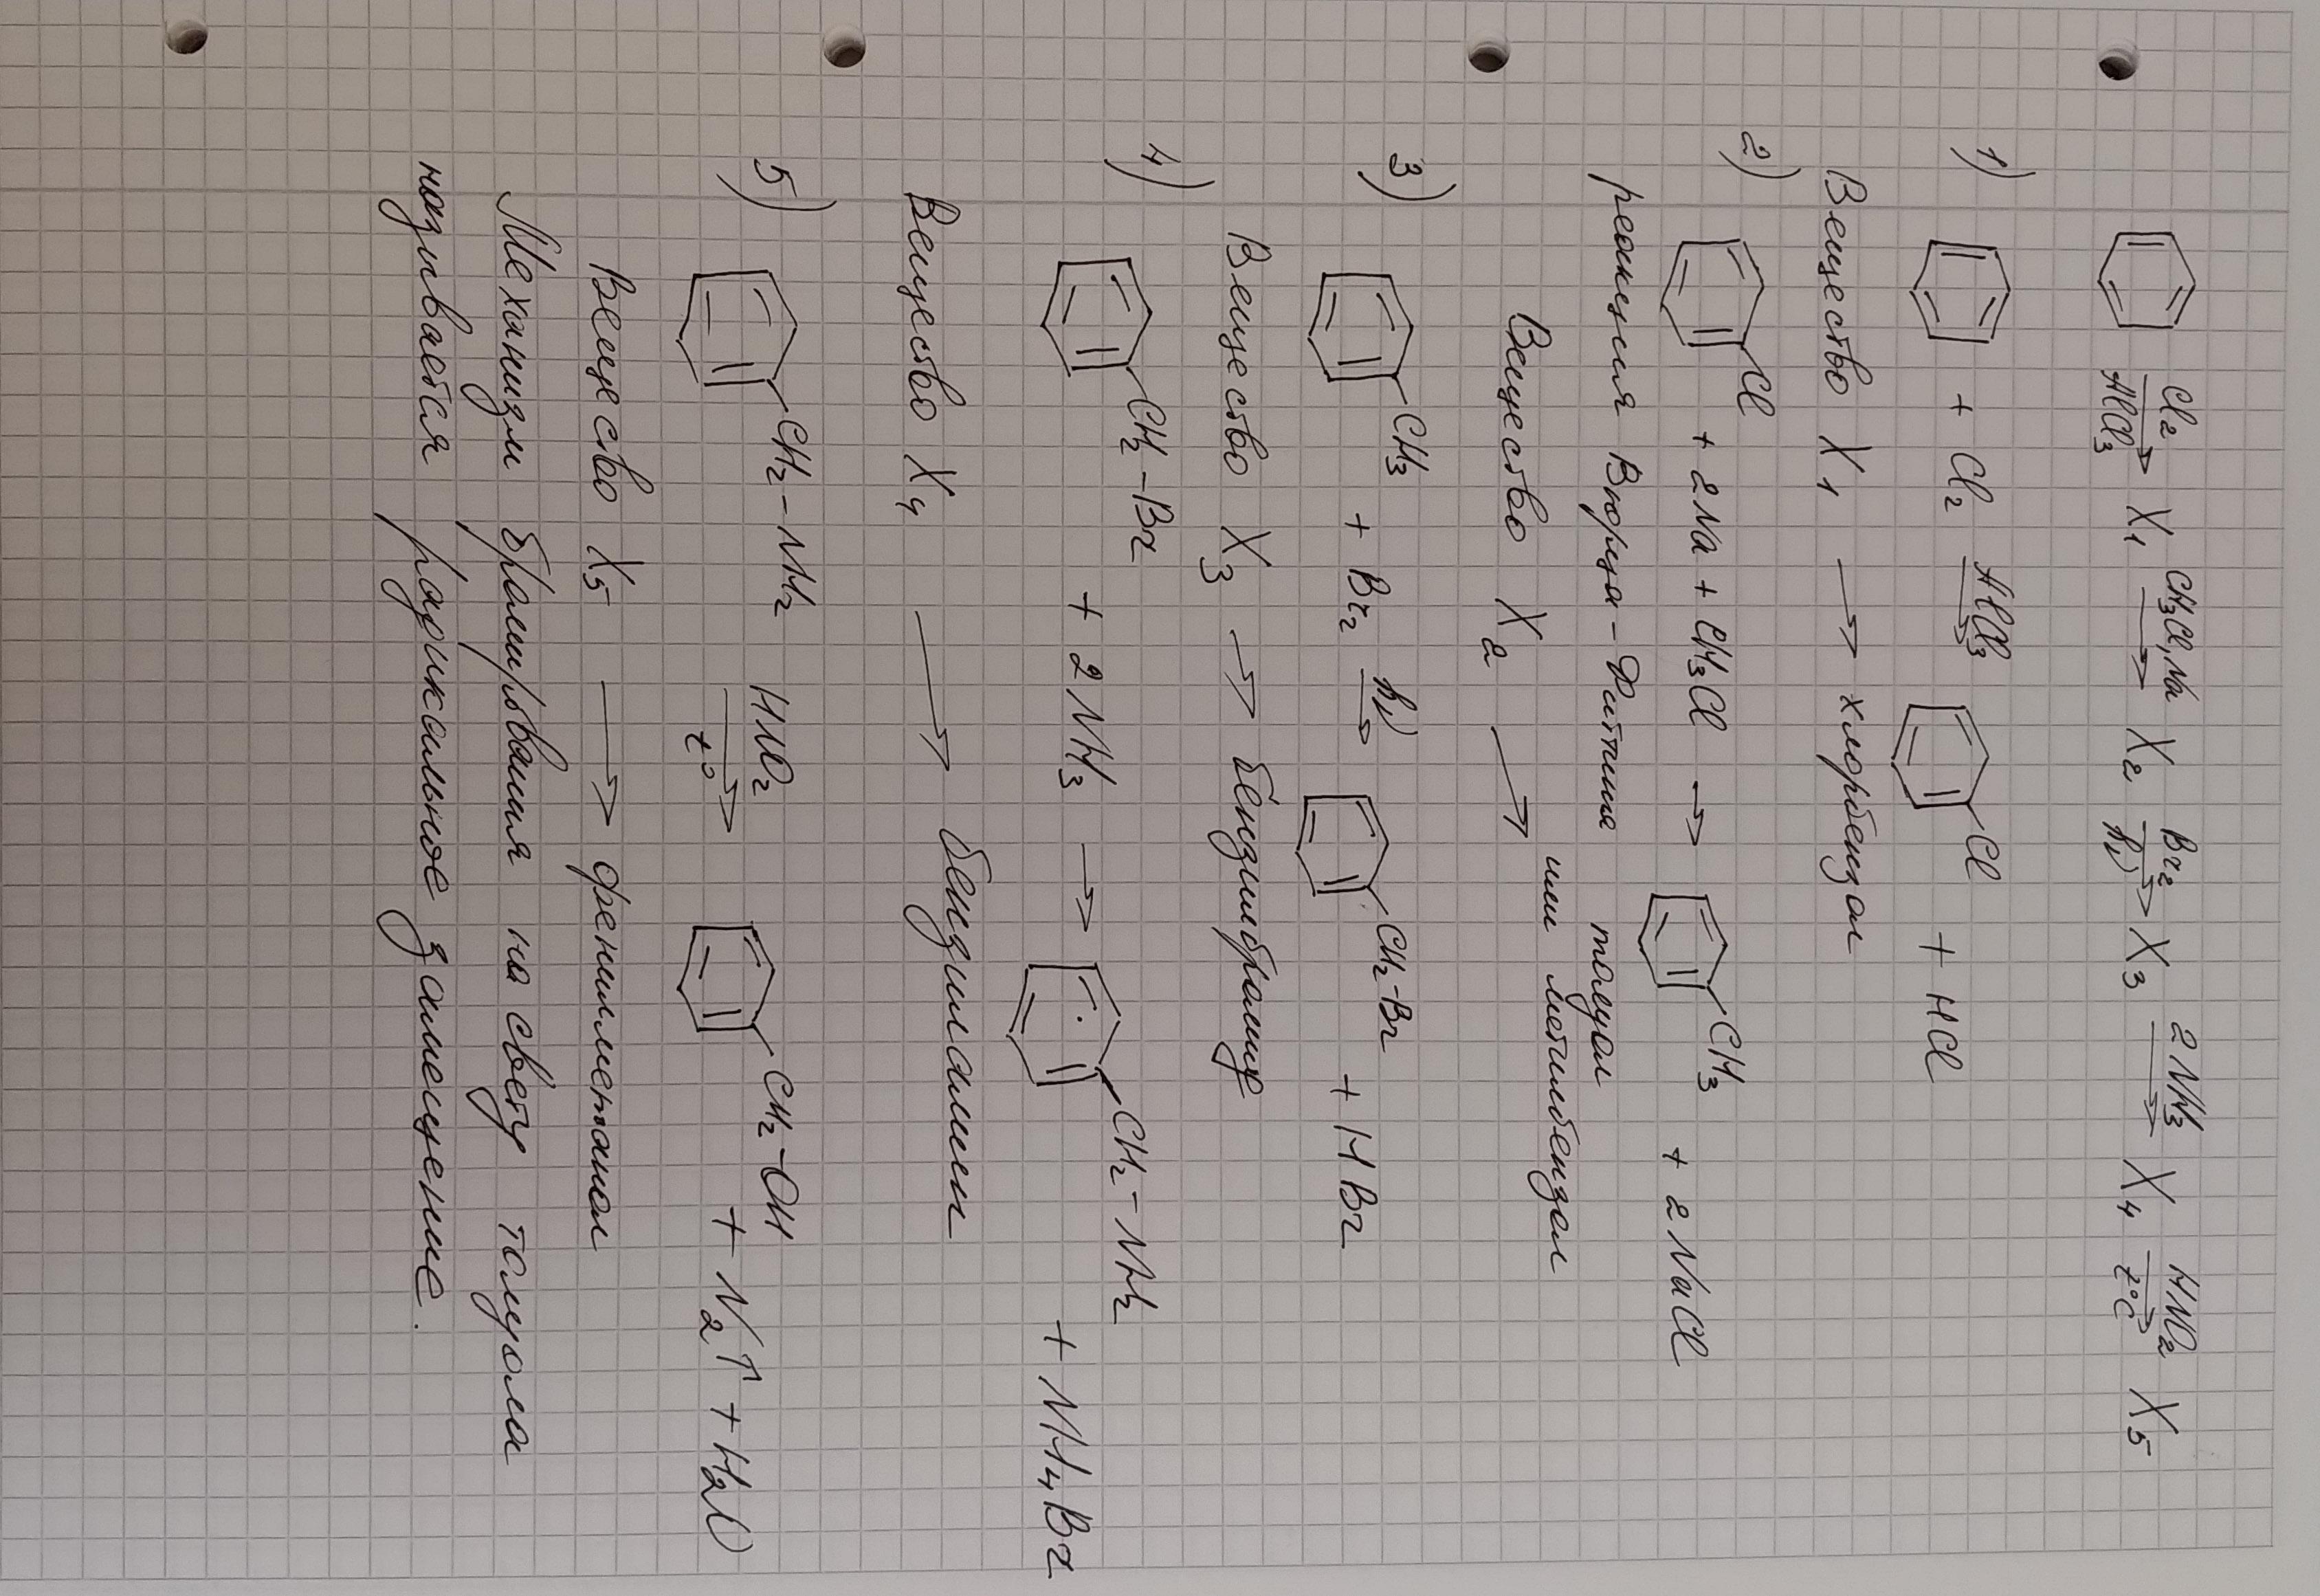 Cl₂ / AlCl₃ → X₁ CH₃Cl, Na → X₂ Br₂ / hν → X₃ 2NH₃ → X₄ HNO₂ / t°C → X₅
1) + Cl₂ AlCl₃ → Cl + HCl
Вещество X₁ → хлорбензол
2) Cl + 2Na + CH₃Cl → CH₃ + 2NaCl
реакция Вюрца-Фиттига толуол
Вещество X₂ → или метилбензол
3) CH₃ + Br₂ hν → CH₂-Br + HBr
Вещество X₃ → бензилбромид
4) CH₂-Br + 2NH₃ → CH₂-NH₂ + NH₄Br
Вещество X₄ → бензиламин
5) CH₂-NH₂ HNO₂ / t° → CH₂-OH + N₂↑ + H₂O
Вещество X₅ → фенилметанол
Механизм бромирования на свету толуола
называется радикальное замещение.